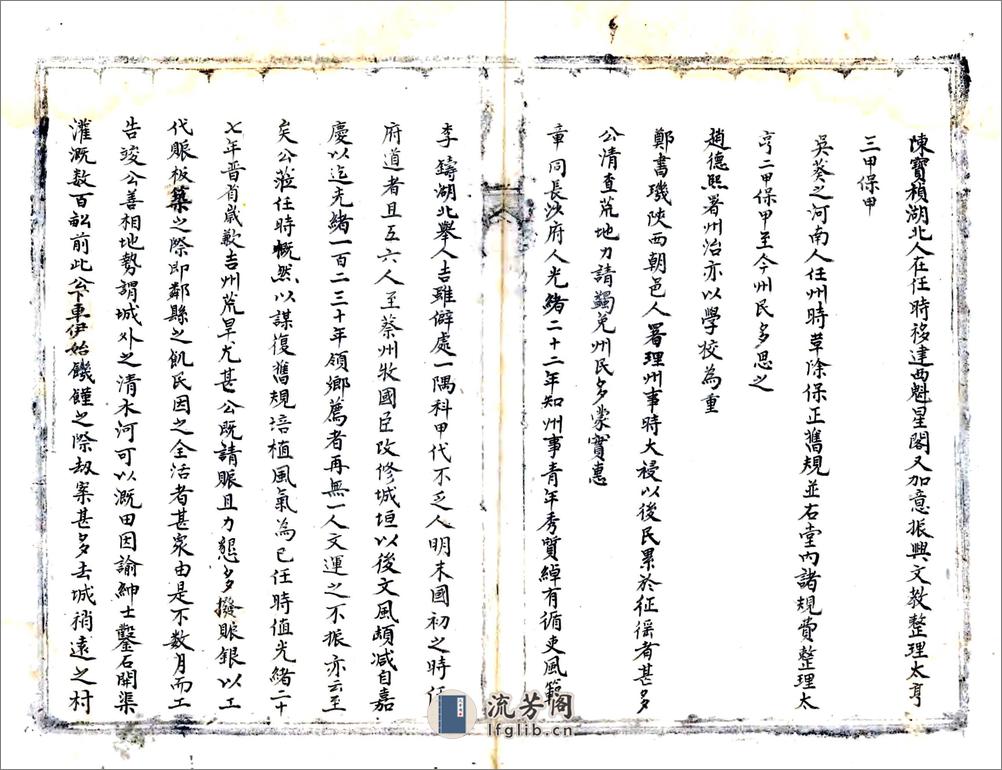 陳寶積湖北人在任時移建西魁星閣又加意振興文教整理太亨
三甲保甲
吳葵之河南人任州時草除保正舊規並右堂內諸規費整理太
亨二甲保甲至今州民多思之
趙德熙署州治亦以學校為重
鄭書璣陝西朝邑人署理州事時大祲以後民累於征徭者甚多
公清查荒地力請蠲免州民多蒙實惠
章同長沙府人光緒二十二年知州事青年秀質綽有循吏風範
李鑄湖北舉人吉雖僻處一隅科甲代不乏人明末國初之時任
府道者且五六人至蔡州牧國臣改修城垣以後文風頗减自嘉
慶以迄光緒一百二三十年領鄉薦者再無一人文運之不振亦云至
矣公蒞任時慨然以謀復舊規培植風氣為己任時值光緒二十
七年晉省歲歉吉州荒旱尤甚公既請賑且力懇多撥賑銀以工
代賑板築之際即鄰縣之飢民因之全活者甚衆由是不数月而工
告竣公善相地勢謂城外之清水河可以溉田因諭紳士鑿石開渠
灌溉数百畝前此公下車伊始饑饉之際刼案甚多去城稍遠之村
流芳阁
lfglib.cn